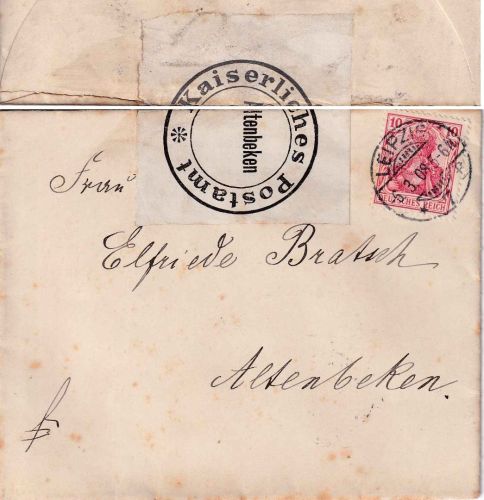 Kaiserliches Postamt
Altenbeken
10 10
LEIPZIG
DEUTSCHES REICH
Frau
Elfriede Bratsch
Altenbeken.